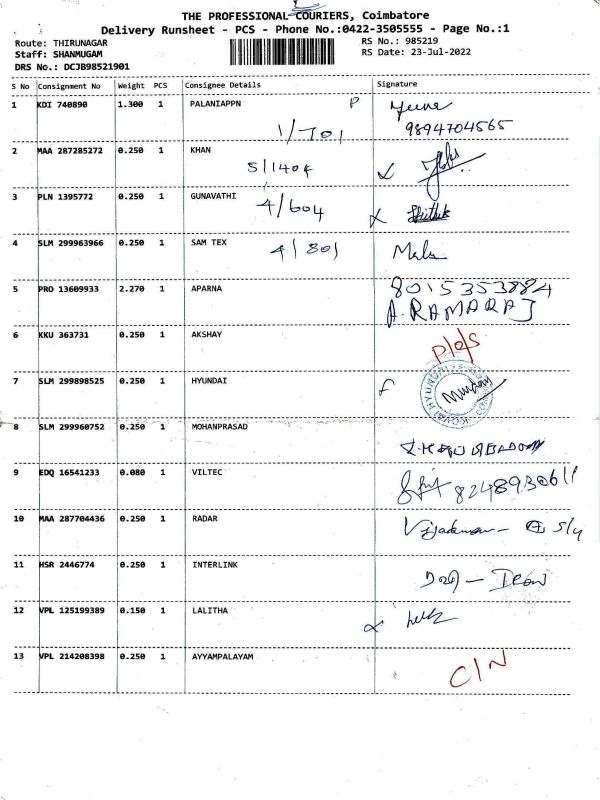 THE PROFESSIONAL COURIERS, Coimbatore
Delivery Runsheet - PCS - Phone No.:0422-3505555 - Page No.:1
Route: THIRUNAGAR
Staff: SHANMUGAM
DRS No.: DCJB98521901
RS No.: 985219
RS Date: 23-Jul-2022
S No Consignment No Weight PCS Consignee Details Signature
1 KDI 740890 1.300 1 PALANIAPPN P
1/701 9894704565
2 MAA 287285272 0.250 1 KHAN
5/1404
3 PLN 1395772 0.250 1 GUNAVATHI
4/604
4 SLM 299963966 0.250 1 SAM TEX 4/801 Mala
5 PRO 13609933 2.270 1 APARNA 8015353884
A.RAMARAJ
6 KKU 363731 0.250 1 AKSHAY
7 SLM 299898525 0.250 1 HYUNDAI
8 SLM 299960752 0.250 1 MOHANPRASAD
9 EDQ 16541233 0.080 1 VILTEC
8248930611
10 MAA 287704436 0.250 1 RADAR
11 HSR 2446774 0.250 1 INTERLINK
12 VPL 125199389 0.150 1 LALITHA
13 VPL 214208398 0.250 1 AYYAMPALAYAM C/N